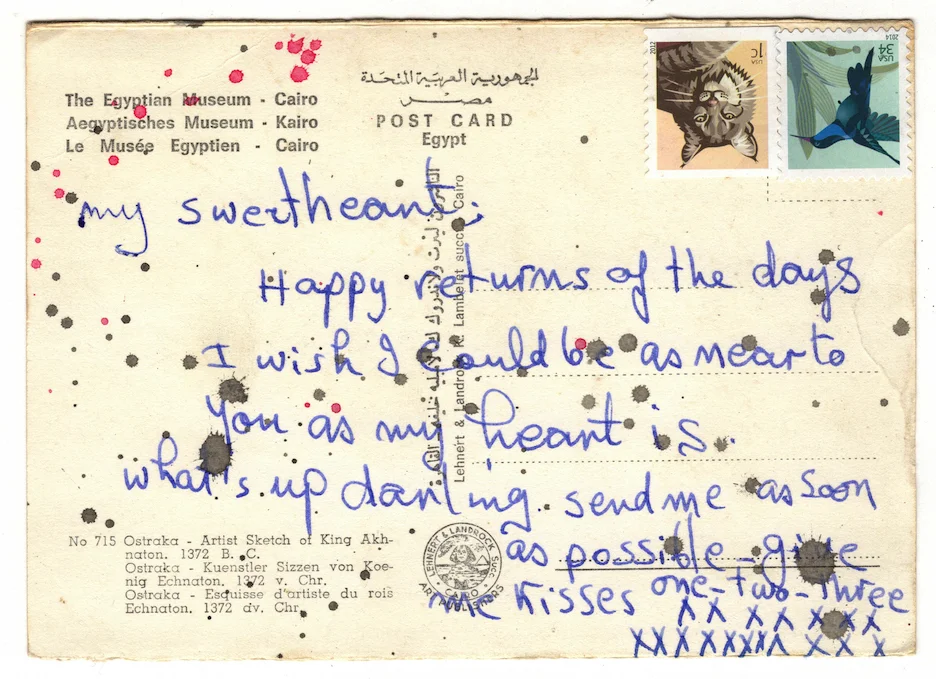 The Egyptian Museum - Cairo
Aegyptisches Museum - Kairo
Le Musée Egyptien - Cairo
الجمهورية العربية المتحدة
مصر
POST CARD
Egypt
2012
1c
USA
2014
34
USA
my sweetheart;
Happy returns of the days
I wish I could be as near to
you as my heart is.
what's up darling. send me as soon
as possible - give
me kisses one-two-three
XX XXXXX
XXXXXXXX XXX
Lehnert & Landrock, K. Lambelet succ. Cairo
No 715 Ostraka - Artist Sketch of King Akh-
naton. 1372 B. C.
Ostraka - Kuenstler Sizzen von Koe-
nig Echnaton. 1372 v. Chr.
Ostraka - Esquisse d'artiste du rois
Echnaton. 1372 dv. Chr.
LEHNERT & LANDROCK SUCC.
CAIRO
ART PUBLISHERS